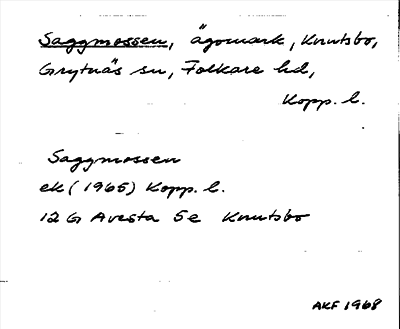 Saggmossen, ägomark, Knutsbo,
Grytnäs sn, Folkare hd,
Kopp. l.
Saggmossen
ek (1965) Kopp. l.
12 G Avesta 5e Knutsbo
AKF 1968